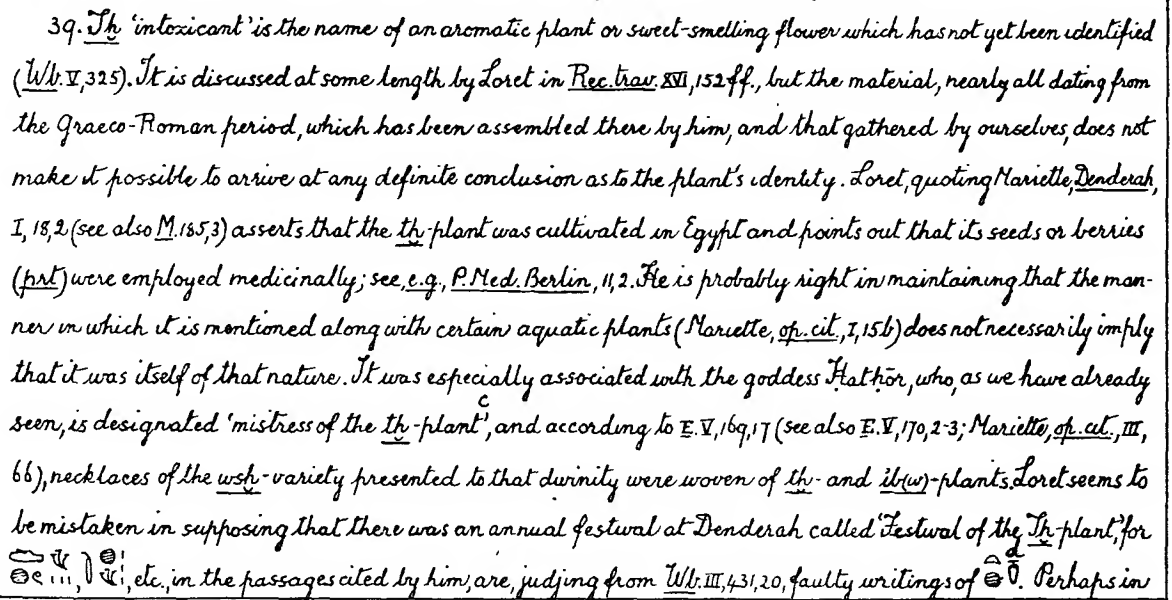 39. Tḫ 'intoxicant' is the name of an aromatic plant or sweet-smelling flower which has not yet been identified
(Wb. V, 325). It is discussed at some length by Loret in Rec. trav. XVI, 152 ff., but the material, nearly all dating from
the Graeco-Roman period, which has been assembled there by him, and that gathered by ourselves, does not
make it possible to arrive at any definite conclusion as to the plant's identity. Loret, quoting Mariette, Denderah,
I, 18, 2 (see also M. 185, 3) asserts that the tḫ-plant was cultivated in Egypt and points out that its seeds or berries
(prt) were employed medicinally; see, e.g., P. Med. Berlin, 11, 2. He is probably right in maintaining that the man-
ner in which it is mentioned along with certain aquatic plants (Mariette, op. cit., I, 15 b) does not necessarily imply
that it was itself of that nature. It was especially associated with the goddess Ḥatḥōr, who, as we have already
seen, is designated 'mistress of the tḫ-plant'ᶜ, and according to E. V, 169, 17 (see also E. V, 170, 2-3; Mariette, op. cit., III,
66), necklaces of the wsḫ-variety presented to that divinity were woven of tḫ- and ib(w)-plants. Loret seems to
be mistaken in supposing that there was an annual festival at Denderah called 'Festival of the Tḫ-plant', for
etc., in the passages cited by him, are, judging from Wb. III, 431, 20, faulty writings of ᵈ. Perhaps in